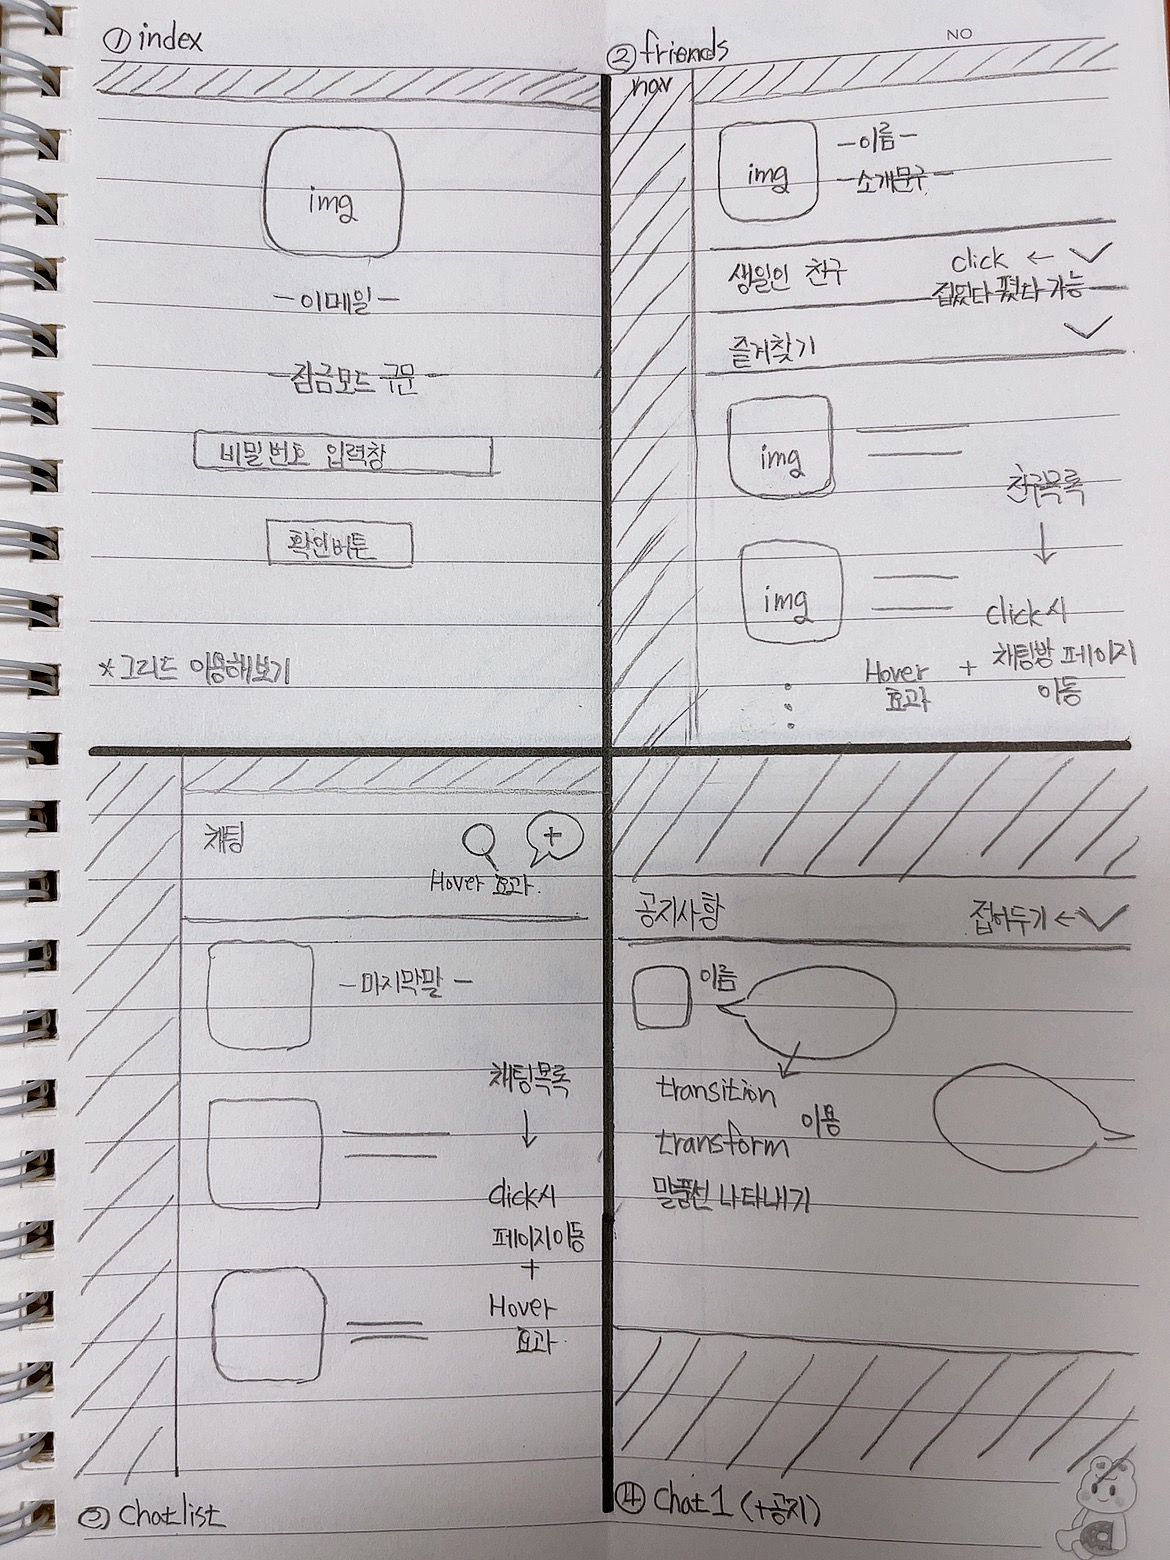 ① index
img
-이메일-
-잠금모드 구문-
비밀번호 입력창
확인버튼
*그리드 이용해보기
② friends
NO
nav
img
-이름-
-소개문구-
생일인 친구
click ←
접었다 폈다 가능
즐겨찾기
img
친구목록
↓
img
click시
Hover + 채팅방 페이지
효과
이동
채팅
+
Hover 효과.
-마지막말-
채팅목록
↓
click시
페이지이동
+
Hover
효과.
③ chatlist
공지사항
접어두기 ←
이름
transition
이용
transform
말풍선 나타내기
④ chat1 (+공지)